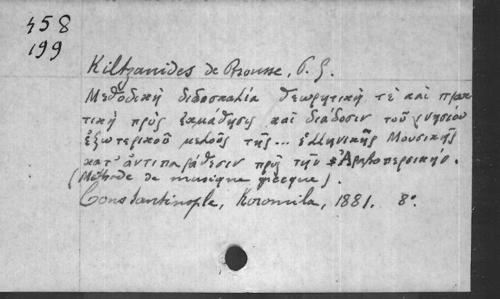 458
199
Kiltzanides de Brousse, P. G.
Μεθοδική διδασκαλία θεωρητική τε καὶ πρακ
τική πρὸς ἐκμάθησιν καὶ διάδοσιν τοῦ γνησίου
ἐξωτερικοῦ μέλους τῆς... ἑλληνικῆς Μουσικῆς
κατ' ἀντιπαράθεσιν πρὸς τὴν Ἀραβοπερσικήν.
(Méthode de musique grecque).
Constantinople, Koromila, 1881. 8°.